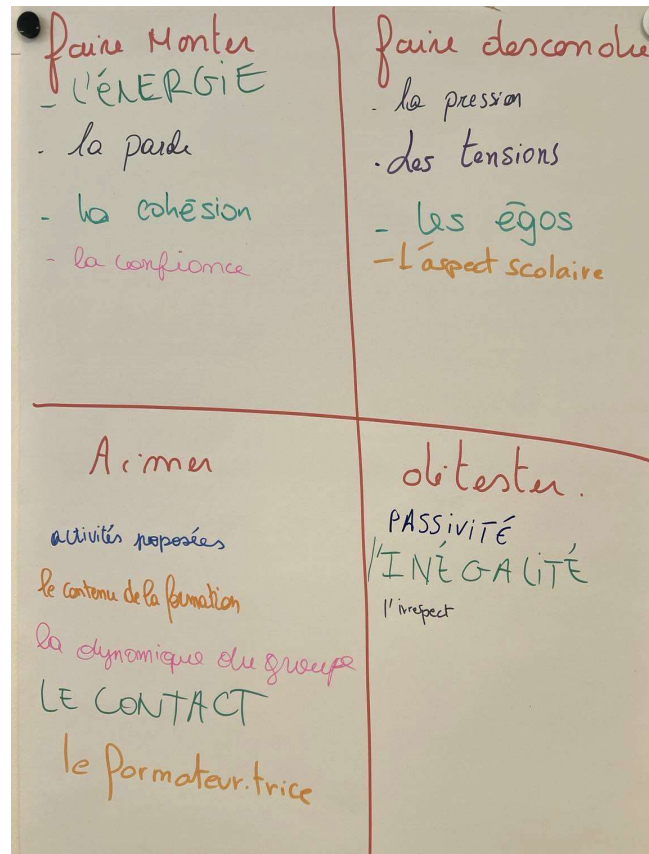 faire Monter
- l'ÉNERGiE
- la parole
- la cohésion
- la confiance
faire descendre
- la pression
- des tensions
- les égos
- L'aspect scolaire
Aimer
activités proposées
le contenu de la formation
la dynamique du groupe
LE CONTACT
le formateur.trice
détester.
PASSiViTÉ
l'INÉGALiTÉ
l'irrespect